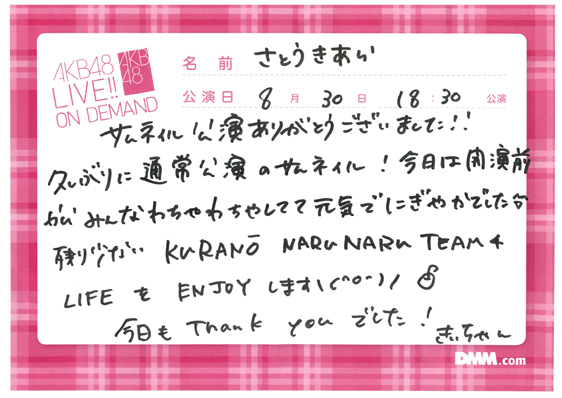 AKB48
LIVE!!
ON DEMAND
AKB
48
名前 さとうきあい
公演日 8月30日 18:30公演
サムネイル公演ありがとうございました!!
久しぶりに通常公演のサムネイル!今日は開演前
からみんなわちゃわちゃしてて元気でにぎやかでした
残り少ない KURANO NARUNARU TEAM4
LIFE を ENJOY します\(^o^)/
今日も Thank you でした!
きぃちゃん
DMM.com